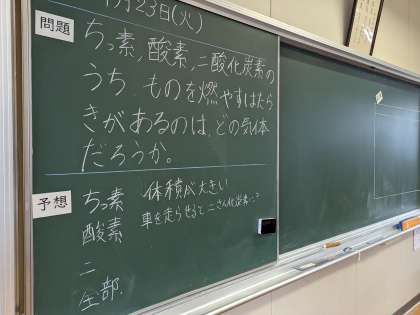 月23日(火)
問題
ちっ素,酸素,二酸化炭素の
うち,ものを燃やすはたら
きがあるのは、どの気体
だろうか。
予想
ちっ素 体積が大きい
酸素 車を走らせると二さん化炭素…?
二
全部